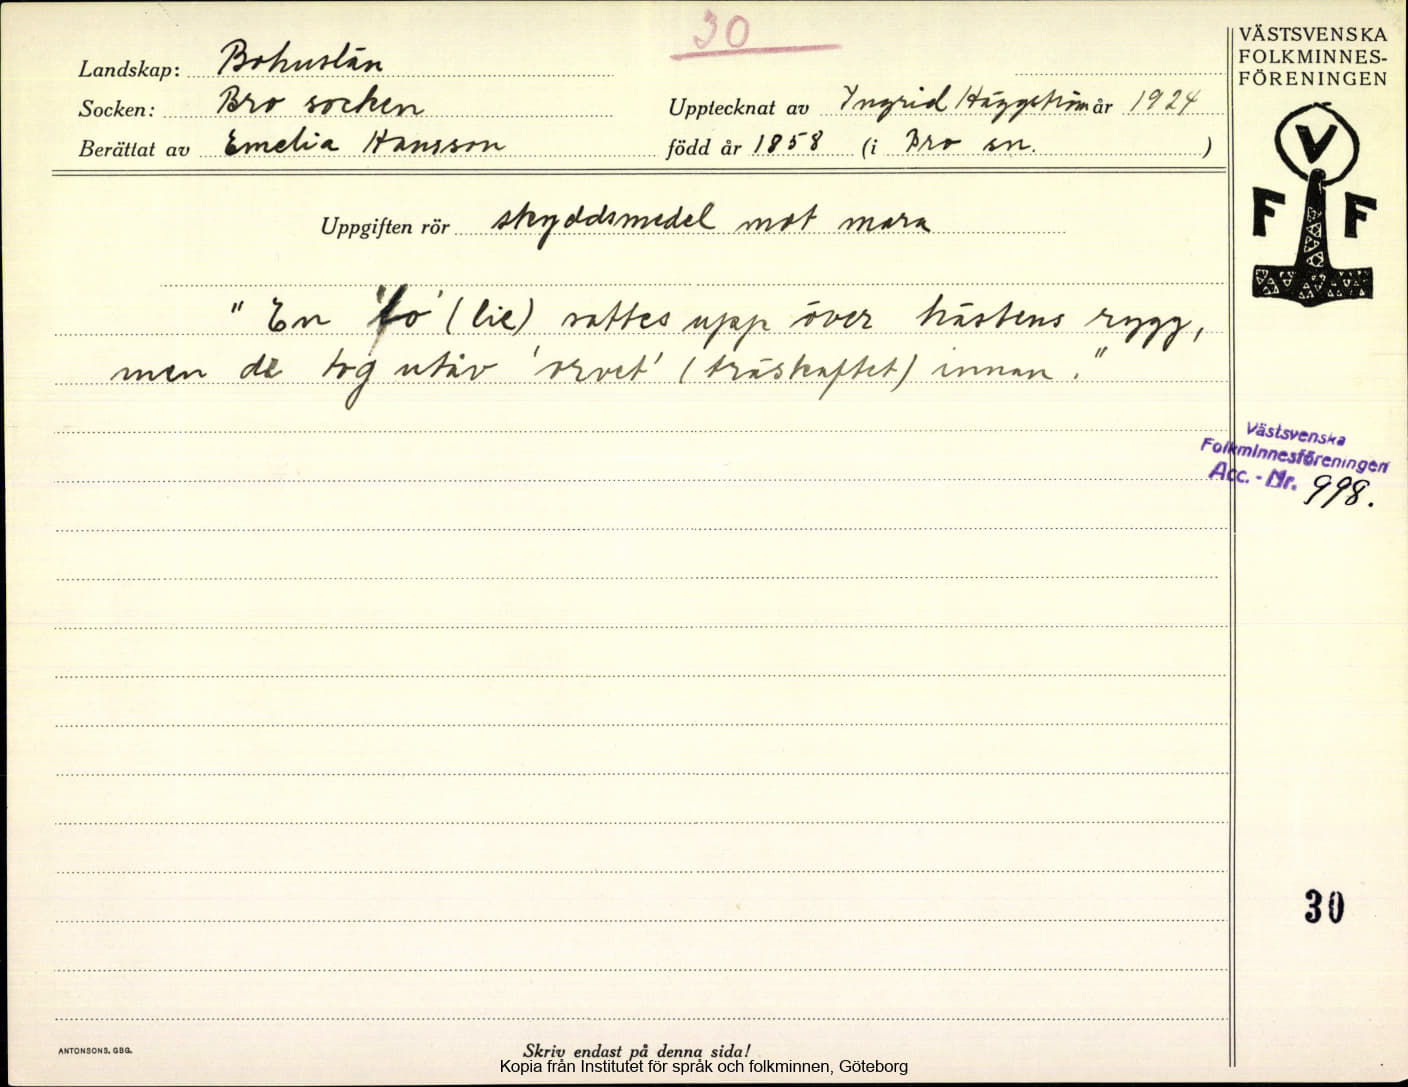 30
VÄSTSVENSKA
FOLKMINNES-
FÖRENINGEN
Landskap: Bohuslän
Socken: Bro socken Upptecknat av Yngrid Häggström år 1924
Berättat av Emelia Hansson född år 1858 (i Bro sn. )
V
F F
Uppgiften rör skyddsmedel mot mara
" En 'lo' (lie) sattes upp över hästens rygg,
men de tog utåv 'orvet' (träskaftet) innan."
Västsvenska
Folkminnesföreningen
Acc. - Nr. 998.
30
ANTONSONS, GBG.
Skriv endast på denna sida!
Kopia från Institutet för språk och folkminnen, Göteborg